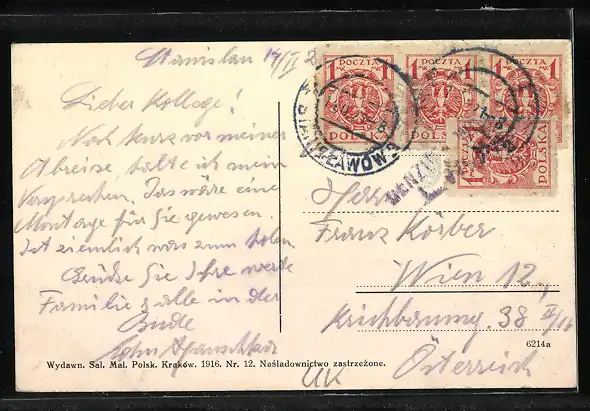 Stanislau 14/VI 2
Lieber Kollege!
Noch kurz vor meiner
Abreise, halte ich mein
Versprechen. Das wäre eine
Montage für Sie gewesen.
Ist ziemlich was zum holen
Grüße Sie Ihre werte
Familie & alle in der
Bude
POCZTA
1 1
POLSKA
POCZTA
1 1
POLSKA
POCZTA
1 1
POLSKA
1
STANISŁAWÓW
Herrn
Franz Körber
Wien 12.
38 II/16
Österreich
Wydawn. Sal. Mal. Polsk. Kraków. 1916. Nr. 12. Naśladownictwo zastrzeżone.
6214a
UK